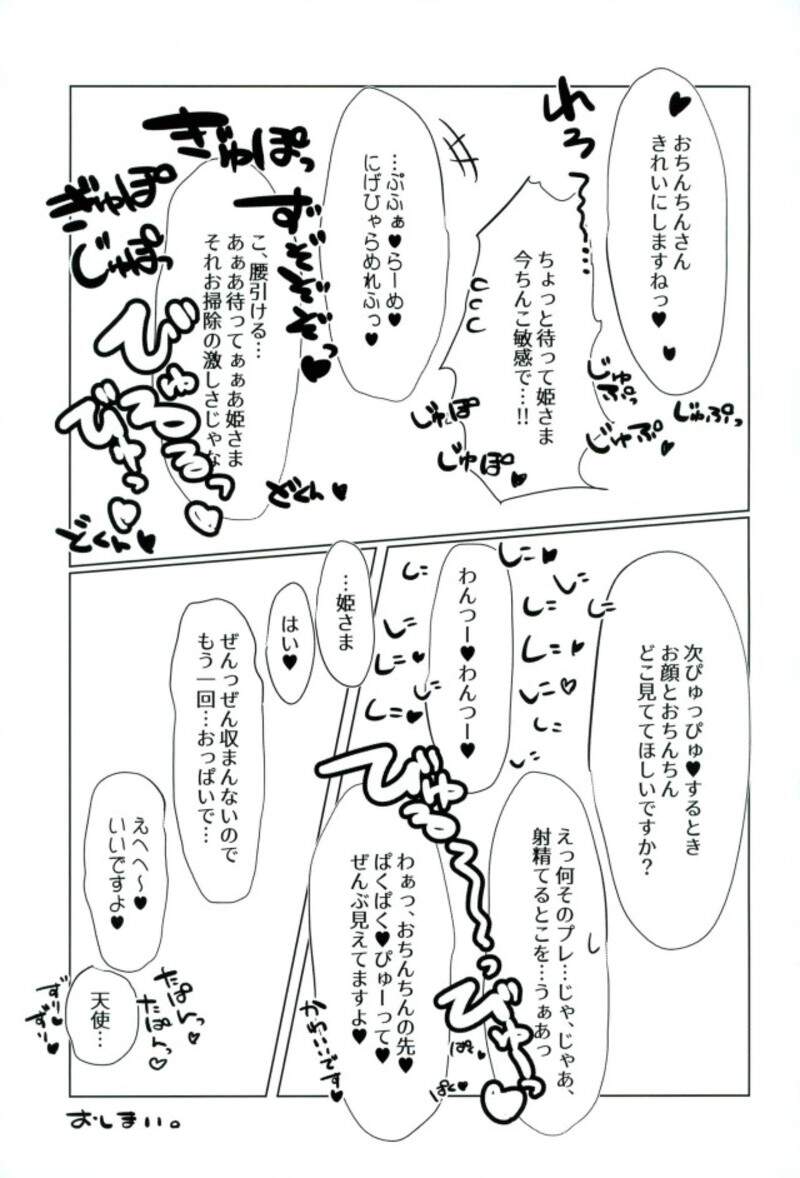 おちんちんさん
きれいにしますねっ♥
♥
れろ〜……
ちょっと待って姫さま
今ちんこ敏感で…!!
じゅぷっ
じゅぷっ
じゅぷ♥
…ぷふぁ♥らーめ♥
にげひゃらめれふっ♥
じゅぽ
じゅぽ♥
ずぞぞぞっ♥
ぎゅぽっ
こ、腰引ける…
あぁあ待ってぁぁあ姫さま
それお掃除の激しさじゃな
どくん♥
どくん♥
次ぴゅっぴゅ♥するとき
お顔とおちんちん
どこ見ててほしいですか?
えっ何そのプレ…じゃ、じゃあ、
射精てるとこを…うぁあっ
わんつー♥わんつー♥
しこ♥
しこ
しこ
しこ♥
しこ♥
しこ
しこ
しこ
しこ♥
しこ
しこ♥
びゅるる〜〜っ
びゅーっ♥
わぁっ、おちんちんの先♥
ぱくぱく♥ぴゅーって♥
ぜんぶ見えてますよ♥
かわいいです♥
ぱく♥
…姫さま
はい♥
ぜんっぜん収まんないので
もう一回…おっぱいで…
えへへ〜♥
いいですよ♥
たぱんっ♥
たぱんっ♥
天使…
ずり♥
ずり♥
おしまい。